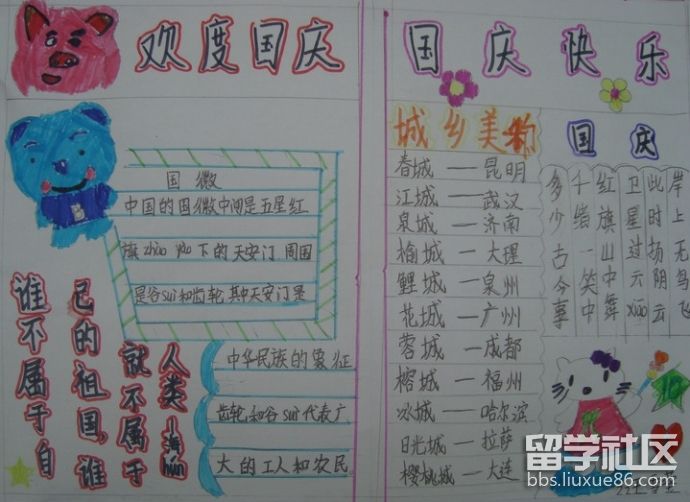 欢度国庆
国徽
中国的国徽中间是五星红
旗zhào yào下的天安门 周围
是谷suì和齿轮 其中天安门是
中华民族的象征
齿轮和谷suì代表广
大的工人和农民
谁不属于自
己的祖国,谁
就不属于
人类
国庆快乐
城乡美韵
春城——昆明
江城——武汉
泉城——济南
榆城——大理
鲤城——泉州
花城——广州
蓉城——成都
榕城——福州
冰城——哈尔滨
日光城——拉萨
樱桃城——大连
国庆
多少古今事
千缩一笑中
红旗山中舞
卫星过云xiāo
此时扬阴云
岸上无鸟飞
留学社区
bbs.liuxue86.com